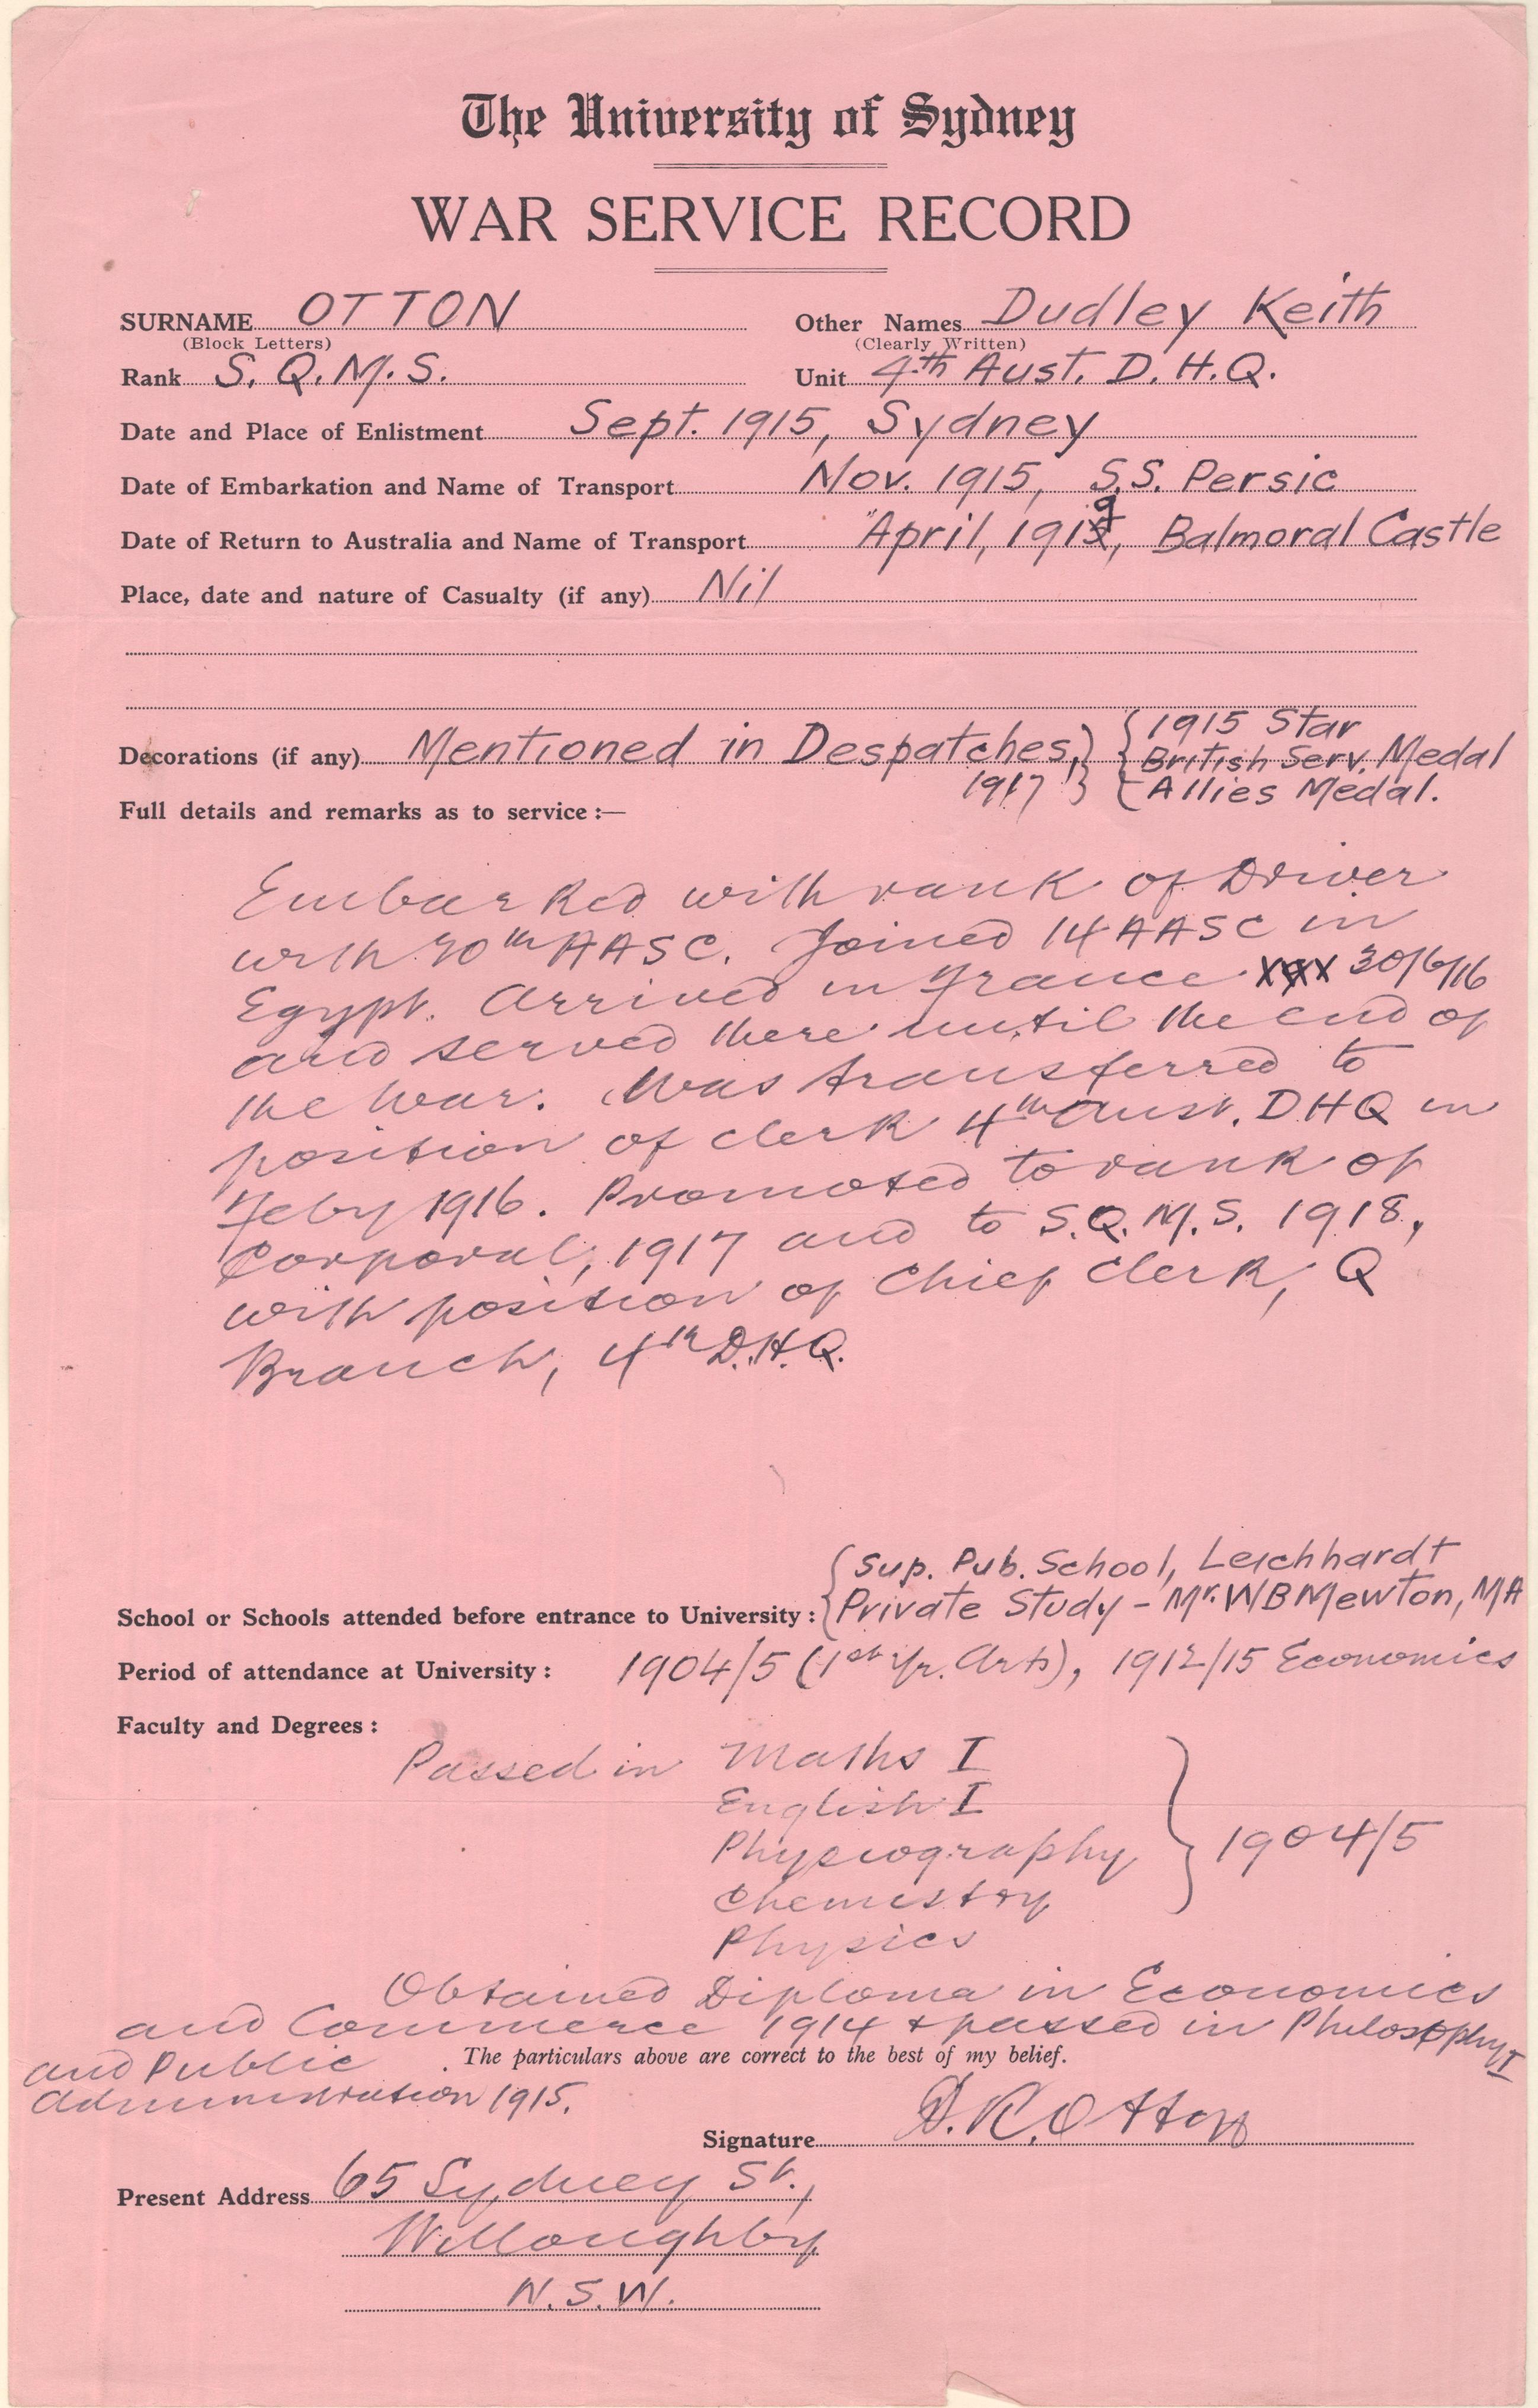 The University of Sydney
WAR SERVICE RECORD
SURNAME OTTON Other Names Dudley Keith
(Block Letters) (Clearly Written)
Rank S.Q.M.S. Unit 4th Aust. D.H.Q.
Date and Place of Enlistment Sept. 1915, Sydney
Date of Embarkation and Name of Transport Nov. 1915, S.S. Persic
Date of Return to Australia and Name of Transport April, 1919, Balmoral Castle
Place, date and nature of Casualty (if any) Nil
Decorations (if any) Mentioned in Despatches, 1917 } { 1915 Star
British Serv. Medal
Allies Medal.
Full details and remarks as to service :—
Embarked with rank of Driver
with AASC. Joined 14 AASC in
Egypt. Arrived in France xxx 30/6/16
and served there until the end of
the war. Was transferred to
position of clerk 4th Aust. DHQ in
Feby 1916. Promoted to rank of
Corporal, 1917 and to S.Q.M.S. 1918,
with position of Chief Clerk, Q
Branch, 4th D.H.Q.
School or Schools attended before entrance to University : { Sup. Pub. School, Leichhardt
Private Study - Mr. W B Mewton, MA
Period of attendance at University : 1904/5 (1st Yr. Arts), 1912/15 Economics
Faculty and Degrees :
Passed in Maths I
English I
Physiography } 1904/5
Chemistry
Physics
Obtained Diploma in Economics
and Commerce 1914 & passed in Philosophy I
and Public
Administration 1915.
The particulars above are correct to the best of my belief.
Signature D.K. Otton
Present Address 65 Sydney St.,
Willoughby
N.S.W.